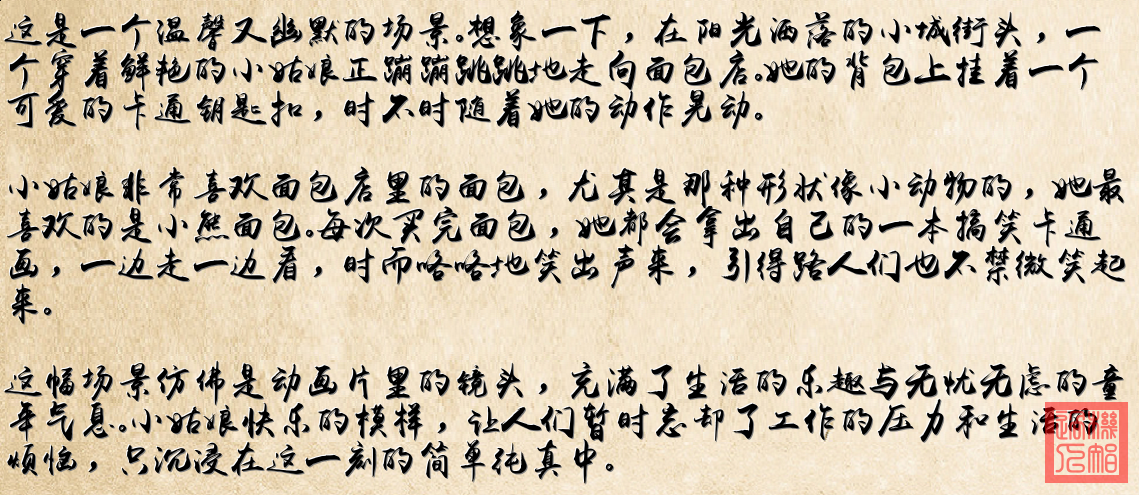 这是一个温馨又幽默的场景。想象一下，在阳光洒落的小城街头，一
个穿着鲜艳的小姑娘正蹦蹦跳跳地走向面包店。她的背包上挂着一个
可爱的卡通钥匙扣，时不时随着她的动作晃动。
小姑娘非常喜欢面包店里的面包，尤其是那种形状像小动物的，她最
喜欢的是小熊面包。每次买完面包，她都会拿出自己的一本搞笑卡通
画，一边走一边看，时而咯咯地笑出声来，引得路人们也不禁微笑起
来。
这幅场景仿佛是动画片里的镜头，充满了生活的乐趣与无忧无虑的童
年气息。小姑娘快乐的模样，让人们暂时忘却了工作的压力和生活的
烦恼，只沉浸在这一刻的简单纯真中。